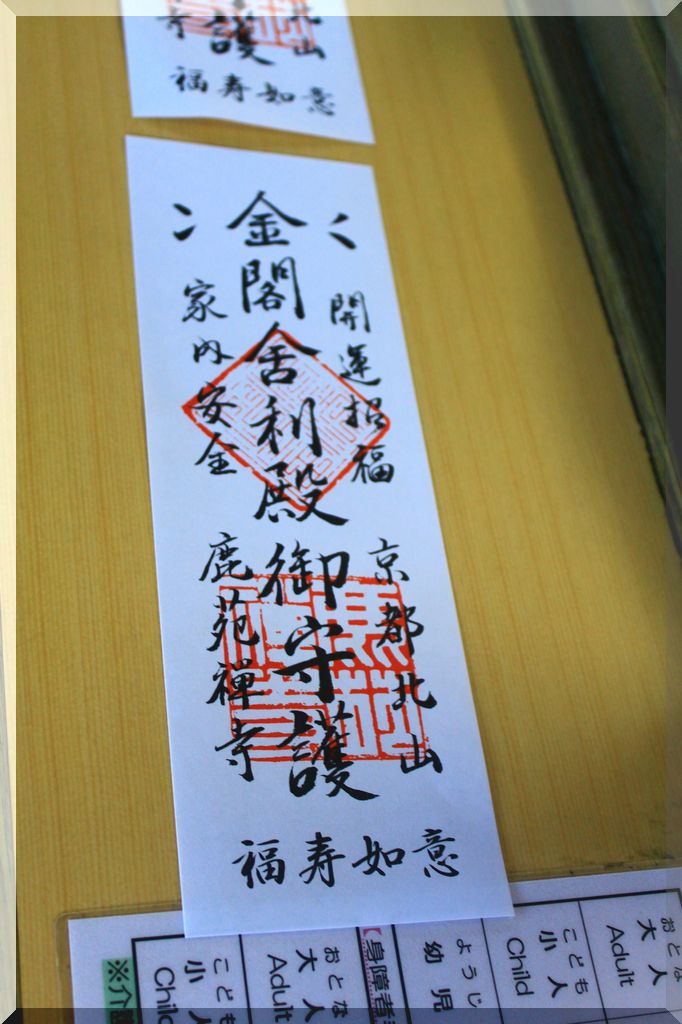 寺 護 山
福寿如意
開運招福
金閣舎利殿御守護
家内安全
京都北山
鹿苑禅寺
福寿如意
おとな
大人
Adult
こども
小人
Child
ようじ
幼児
【身障者
おとな
大人
Adult
こども
小人
Child
※介